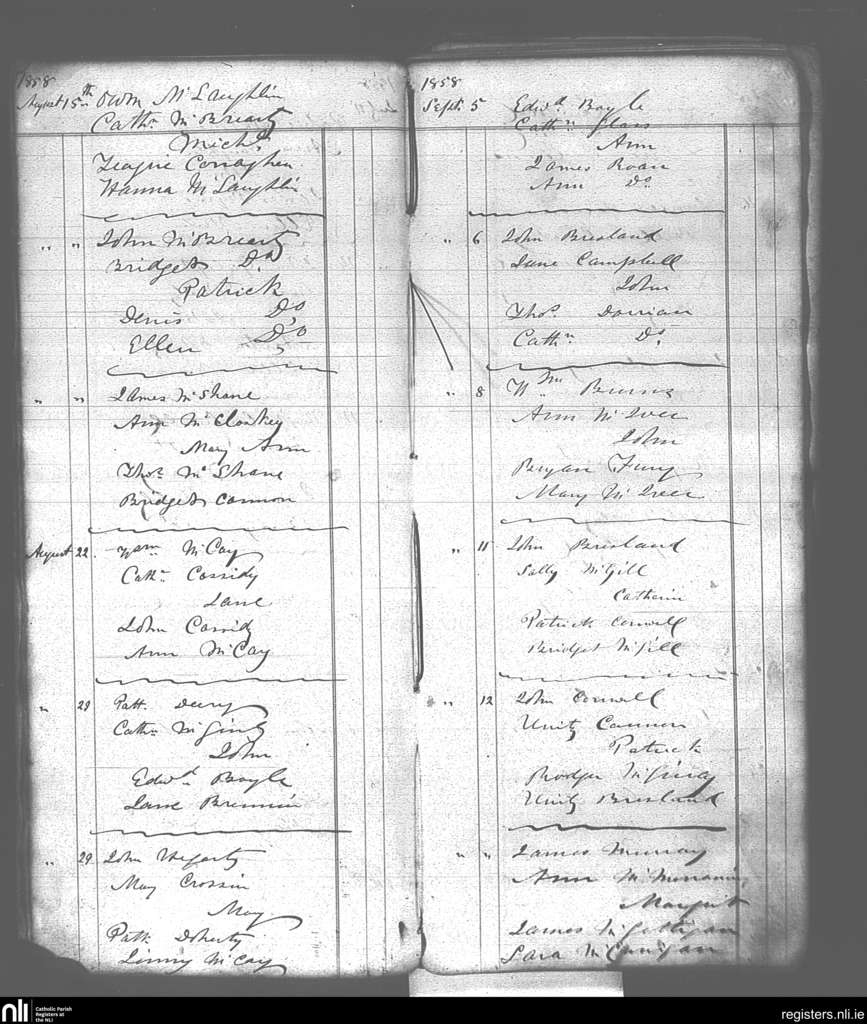 1858
August 15th Owen McLaughlin
Cathn. McBrearty
Michl.
Teague Conaghan
Hanna McLaughlin
" " John McBrearty
Bridget Do.
Patrick
Denis Do.
Ellen Do.
" " James McShane
Ann McCloskey
Mary Ann
Thos. McShane
Bridget Cannon
August 22 Wm. McCay
Cathn. Cassidy
Jane
John Cassidy
Ann McCay
" 29 Patt. Deery
Cathn. McGinty
John
Edwd. Boyle
Jane Brennin
" 29 John Hegarty
May Crossin
May
Patt. Doherty
Jinny McCay
1858
Sept. 5 Edwd. Boyle
Cathn. Glass
Ann
James Roan
Ann Do.
" 6 John Bresland
Jane Campbell
John
Thos. Dorrian
Cathn. Do.
" 8 Wm. Burns
Ann McIver
John
Bryan Fury
Mary McIver
" 11 John Bresland
Sally McGill
Catherin
Patrick Conwell
Bridget McGill
" 12 John Conwell
Unity Cannon
Patrick
Rodger McGinty
Unity Bresland
" " James Murray
Ann
Margret
James McGettigan
Sara
nli
Catholic Parish
Registers at
the NLI
registers.nli.ie